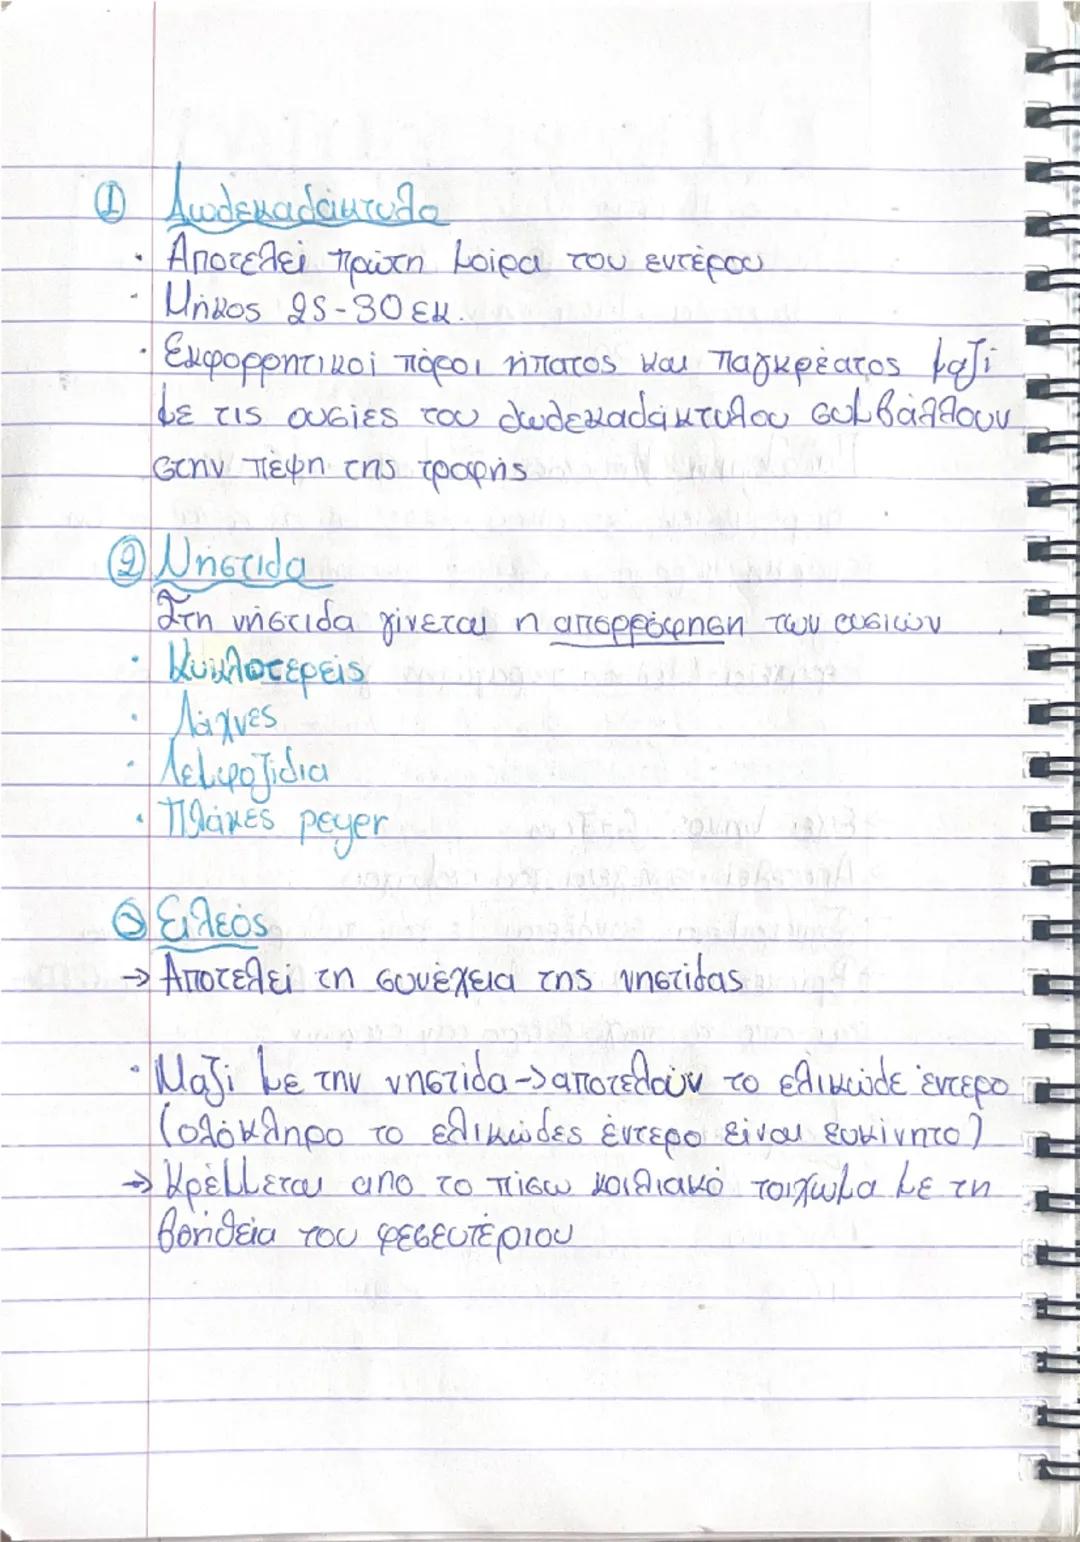 ① Δωδεκαδάκτυλο
· Αποτελεί πρώτη μοίρα του εντέρου
· Μήκος 25-30 εκ.
· Εκφορρητικοί πόροι ήπατος και παγκρέατος μαζί
με τις ουσίες του δωδεκαδάκτυλου συμβάλλουν
στην πέψη της τροφής
② Νήστιδα
Στη νήστιδα γίνεται η απορρόφηση των ουσιών
· Κυκλοτερείς
· Λάχνες
· Λεμφοζίδια
· Πλάκες peyer
③ Ειλεός
→ Αποτελεί τη συνέχεια της νηστίδας
· Μαζί με την νηστίδα → αποτελούν το ελικώδε έντερο
(ολόκληρο το ελικώδες έντερο είναι ευκίνητο)
→ Κρέμμεται απο το πίσω κοιλιακό τοιχωμα με τη
βοήθεια του φεσεντέριου